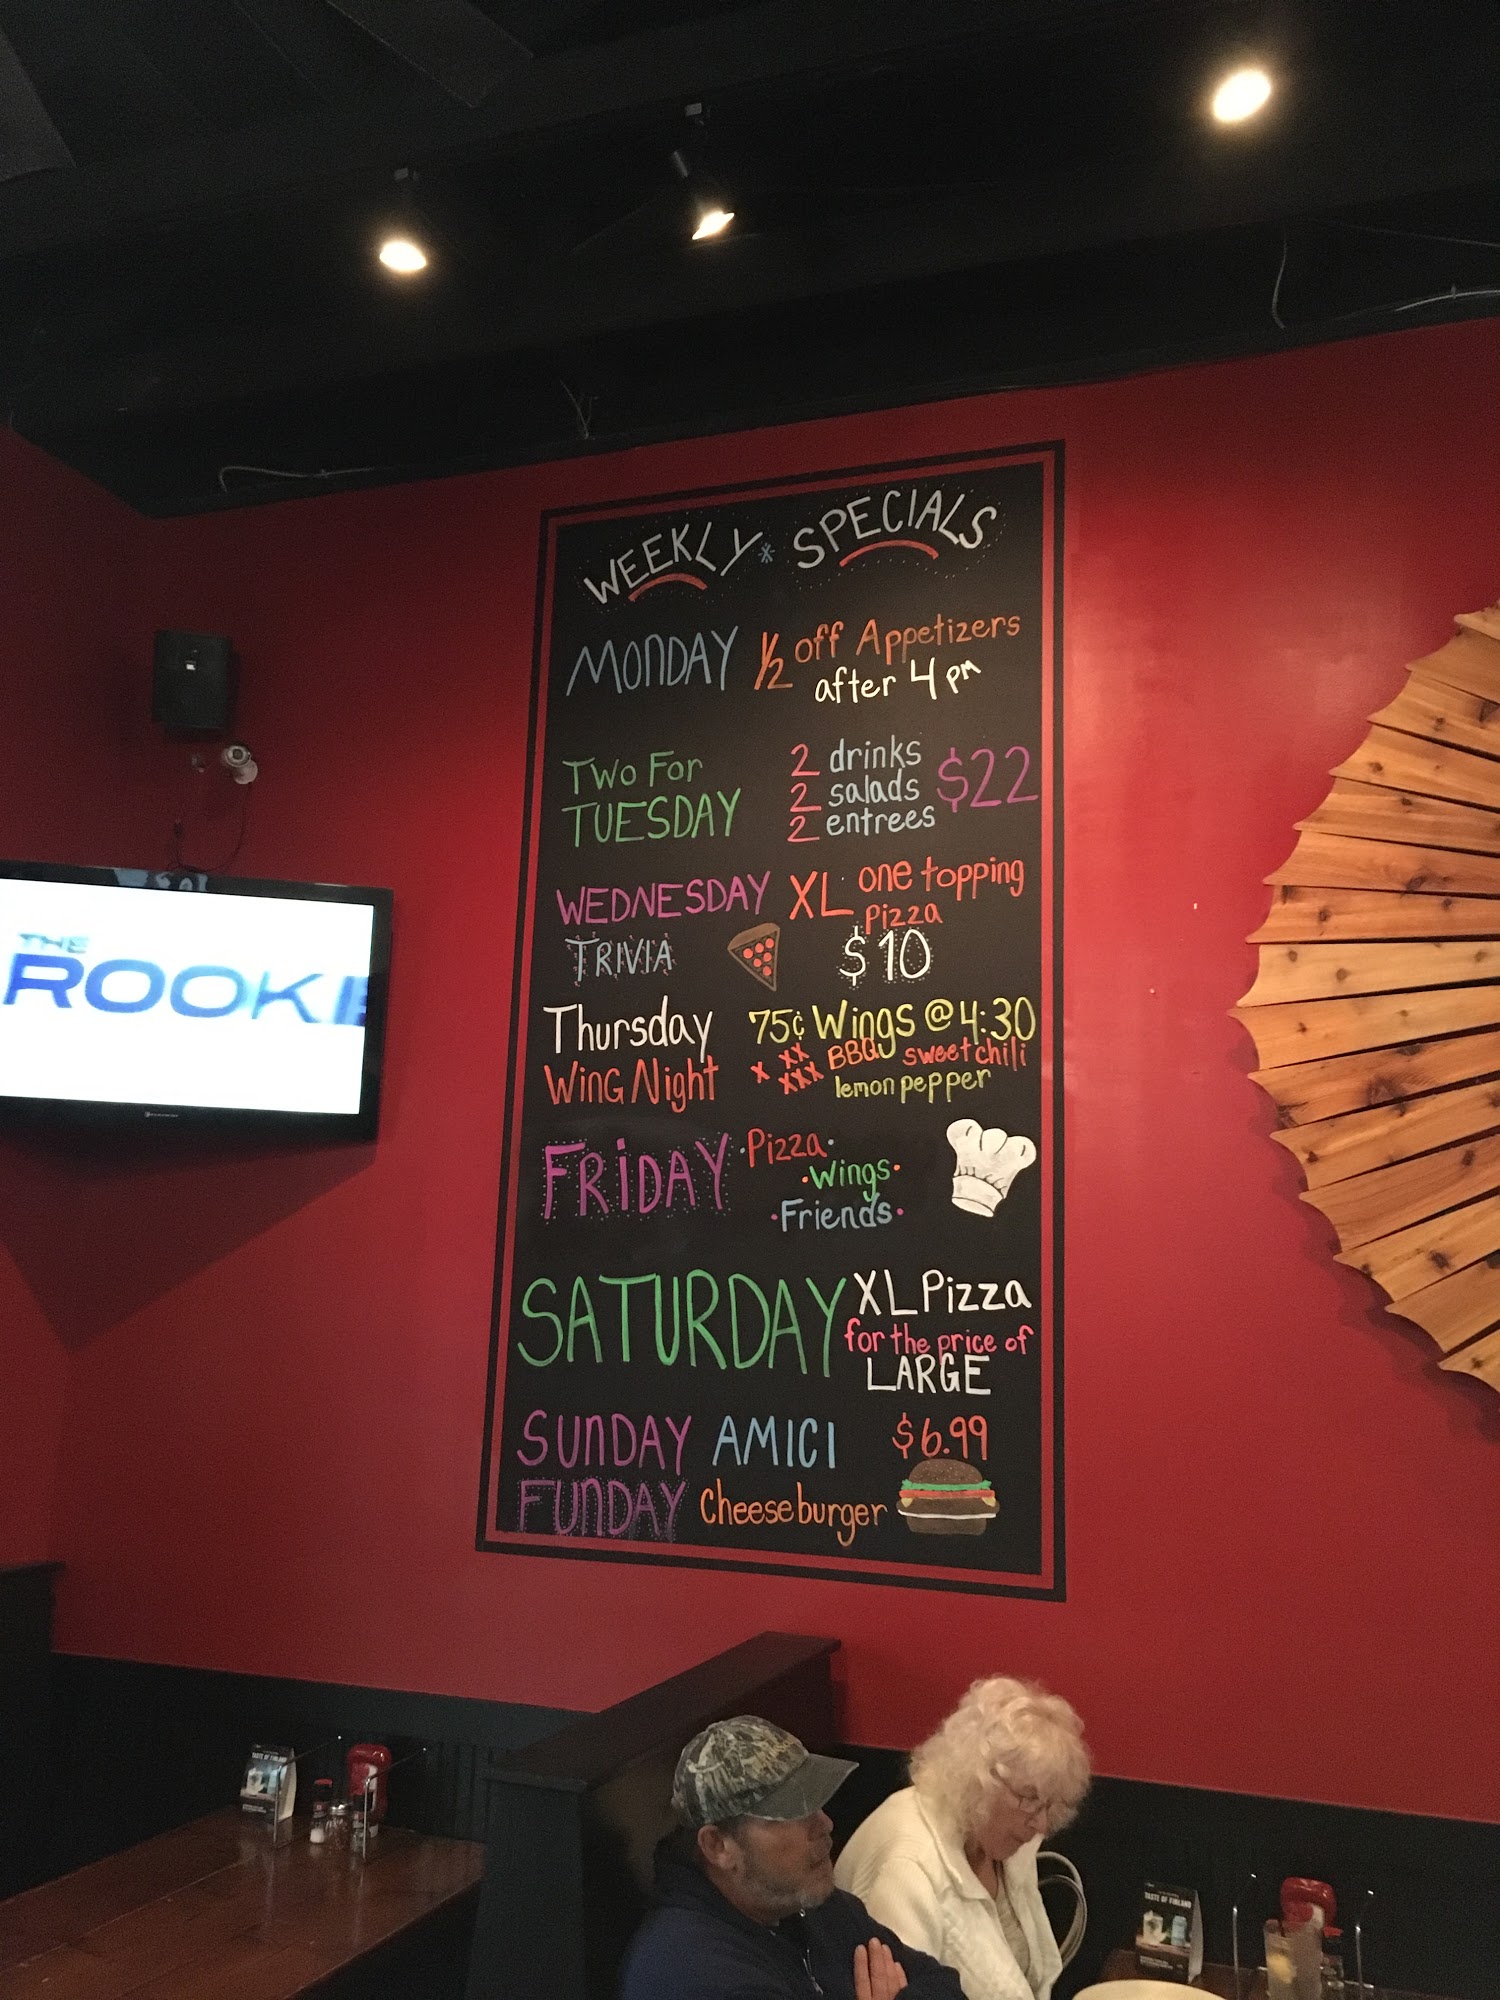 WEEKLY * SPECIALS
MONDAY 1/2 off Appetizers
after 4 pm
TWO FOR
TUESDAY
2 drinks
2 salads
2 entrees
$22
WEDNESDAY
TRIVIA
XL one topping
pizza
$10
Thursday
WING Night
75¢ Wings @ 4:30
x xx xxx BBQ sweet chili
lemon pepper
FRiDAY
·Pizza·
·Wings·
·Friends·
SATURDAY
XL Pizza
for the price of
LARGE
SUNDAY
FUNDAY
AMICI
Cheeseburger
$6.99
THE
ROOKIE
TASTE OF FINLAND
TASTE OF FINLAND